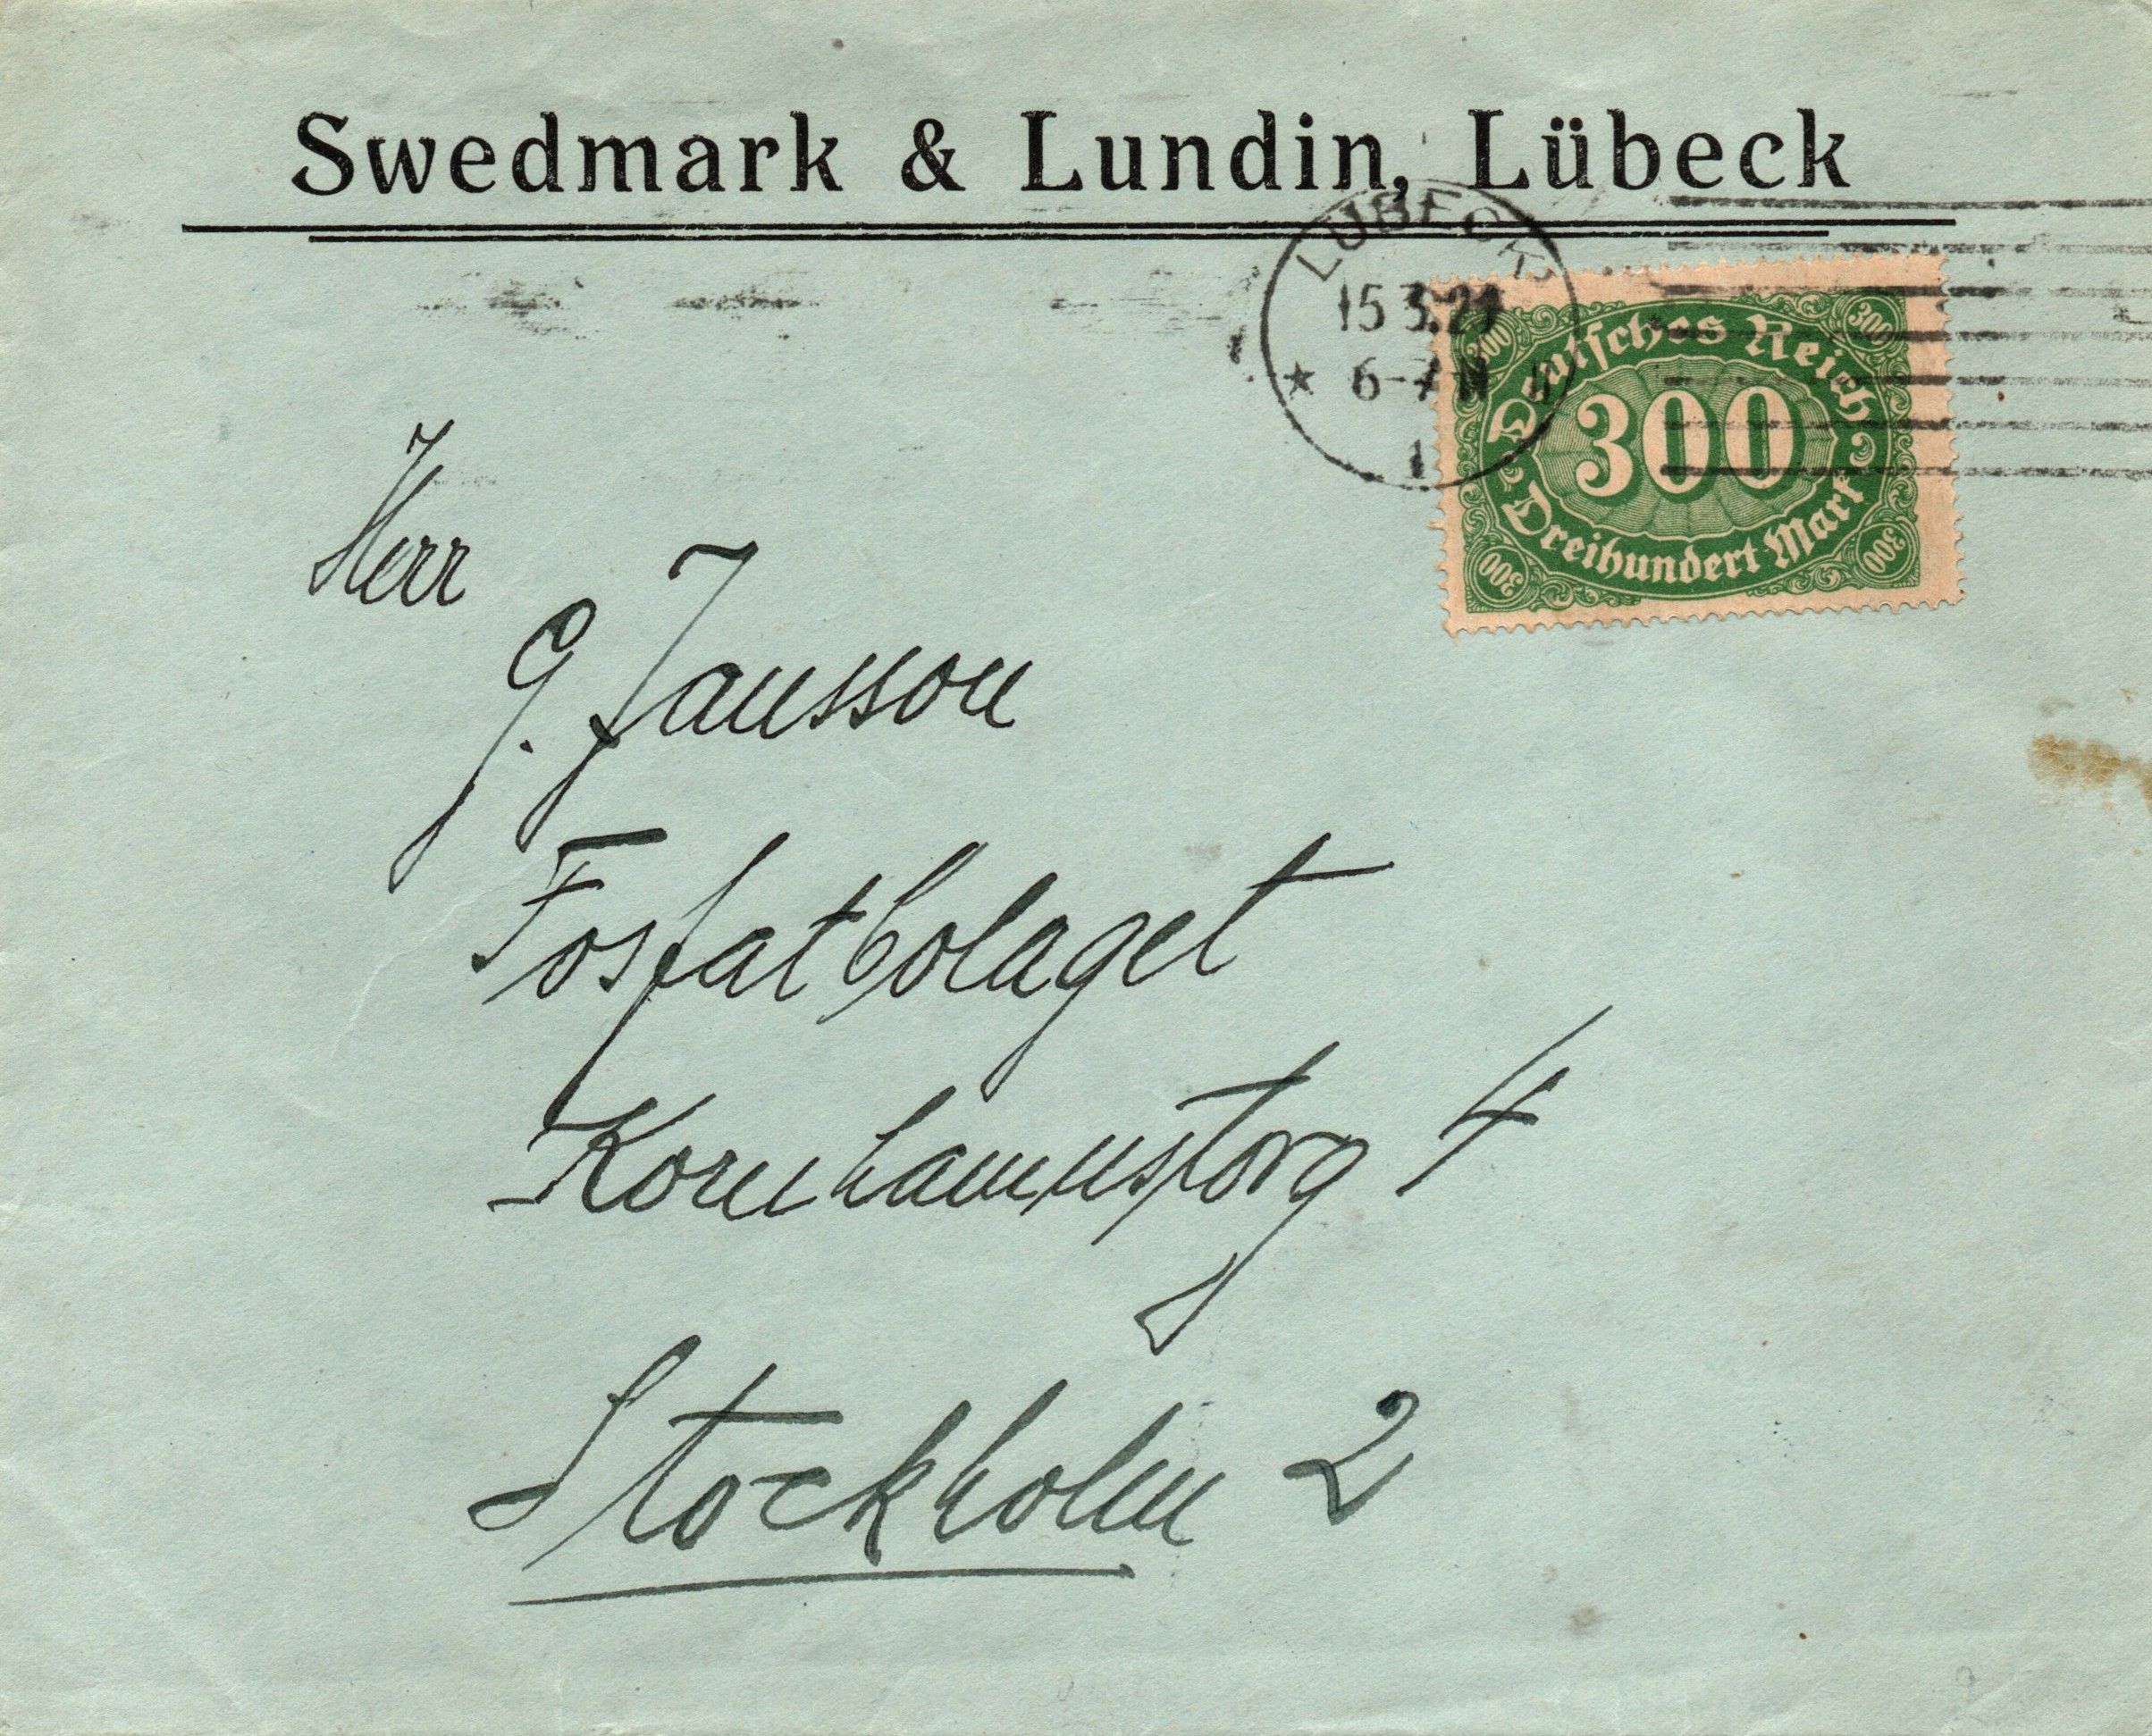 Swedmark & Lundin, Lübeck
LÜBECK
15 3.
* 6-7 N
1
Deutsches Reich
300
300
300
Dreihundert Mark
300
300
Herr
G. Jansson
Fosfatbolaget
Kornhamnstorg 4
Stockholm 2